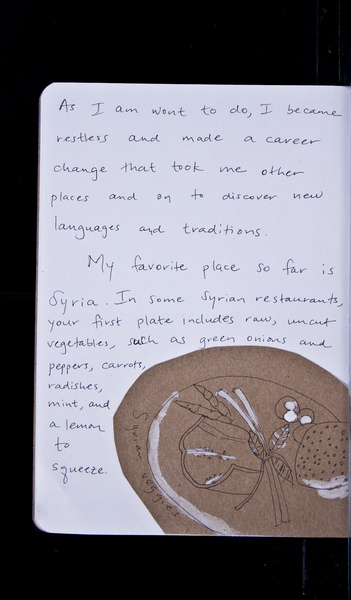 As I am wont to do, I became
restless and made a career
change that took me other
places and on to discover new
languages and traditions.
My favorite place so far is
Syria. In some Syrian restaurants,
your first plate includes raw, uncut
vegetables, such as green onions and
peppers, carrots,
radishes,
mint, and
a lemon
to
squeeze.
Syrian veggies